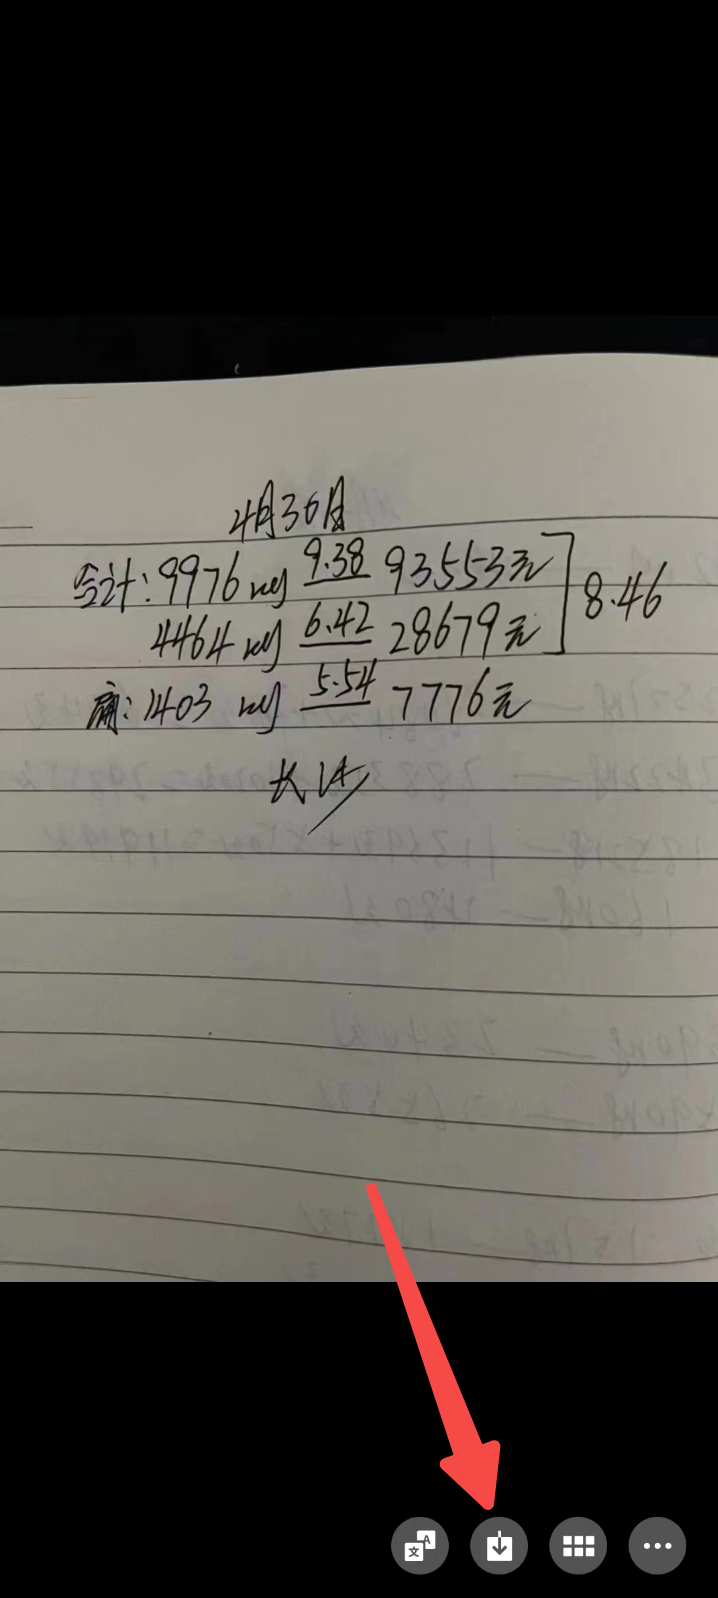 4月30日
合计:9976 kg 9.38 93553元
4464 kg 6.42 28679元
8.46
:1403 kg 5.54 7776元
长沙